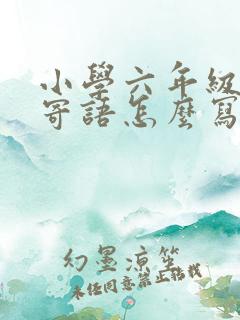 小學六年級
寄語怎麼寫
幻墨涼笙
未經同意禁止搭載